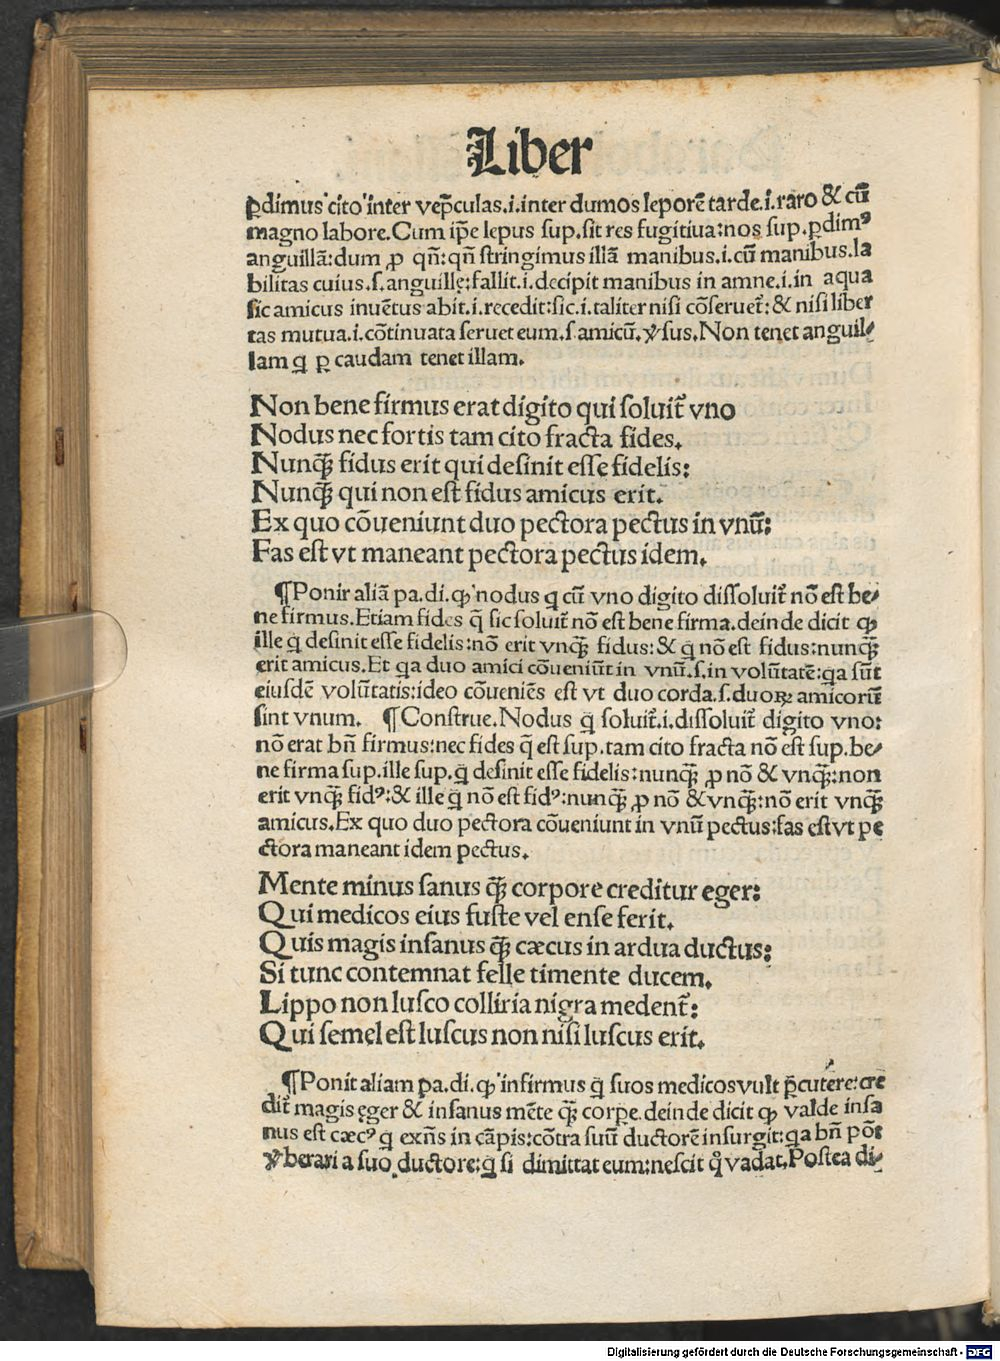 Liber
ꝑdimus cito inter vep̃culas.i.inter dumos leporẽ tarde.i.raro & cũ
magno labore.Cum ip̃e lepus sup.sit res fugitiua:nos sup.ꝑdimꝰ
anguillã:dum ꝓ qñ:qñ stringimus illã manibus.i.cũ manibus.la
bilitas cuius.s.anguillę:fallit.i.decipit manibus in amne.i.in aqua
sic amicus inuẽtus abit.i.recedit:sic.i.taliter nisi cõseruet̃:& nisi liber
tas mutua.i.cõtinuata seruet eum.s.amicũ.ꝟsus.Non tenet anguil⸗
lam q̇ ꝑ caudam tenet illam.
Non bene firmus erat digito qui soluit̃ vno
Nodus nec fortis tam cito fracta fides.
Nunq̃ꝫ fidus erit qui desinit esse fidelis:
Nunq̃ꝫ qui non est fidus amicus erit.
Ex quo cõueniunt duo pectora pectus in vnũ:
Fas est vt maneant pectora pectus idem.
¶Ponit aliã pa.di.ꝙ nodus q̇ cũ vno digito dissoluit̃ nõ est be⸗
ne firmus.Etiam fides q̃ sic soluit̃ nõ est bene firma.deinde dicit ꝙ
ille q̇ desinit esse fidelis:nõ erit vnq̃ꝫ fidus:& q̇ nõ est fidus:nunq̃ꝫ
erit amicus.Et q̇a duo amici cõueniũt in vnũ.s.in volũtatẽ:q̇a sũt
eiusdẽ volũtatis:ideo cõueniẽs est vt duo corda.s.duoꝝ amicorũ
sint vnum. ¶Construe.Nodus q̇ soluit̃.i.dissoluit̃ digito vno:
nõ erat bñ firmus:nec fides q̃ est sup.tam cito fracta nõ est sup.be⸗
ne firma sup.ille sup.q̇ desinit esse fidelis:nunq̃ꝫ ꝓ nõ & vnq̃ꝫ:non
erit vnq̃ꝫ fidꝰ:& ille q̇ nõ est fidꝰ:nunq̃ꝫ ꝓ nõ & vnq̃ꝫ:nõ erit vnq̃ꝫ
amicus.Ex quo duo pectora cõueniunt in vnũ pectus:fas est vt pe
ctora maneant idem pectus.
Mente minus sanus q̃ꝫ corpore creditur eger:
Qui medicos eius fuste vel ense ferit.
Quis magis insanus q̃ꝫ cæcus in ardua ductus:
Si tunc contemnat felle timente ducem.
Lippo non lusco colliria nigra medent̃:
Qui semel est luscus non nisi luscus erit.
¶Ponit aliam pa.di.ꝙ infirmus q̇ suos medicos vult p̃cutere:cre
dit̃ magis ęger & insanus mẽte q̃ꝫ corpe.deinde dicit ꝙ valde insa
nus est cæcꝰ q̇ exñs in cãpis:cõtra suũ ductorẽ insurgit:q̇a bñ põt
ꝟberari a suo ductore:q̇ si dimittat eum:nescit q̊ vadat.Postea di⸗
Digitalisierung gefördert durch die Deutsche Forschungsgemeinschaft - DFG